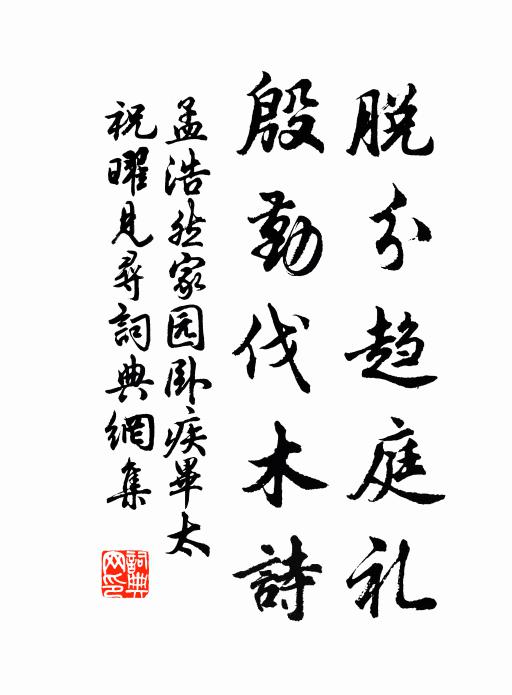 脱分趋庭礼
殷勤伐木詩
孟浩然家园卧疾畢太
祝曜見尋詞典網集
詞典
网印